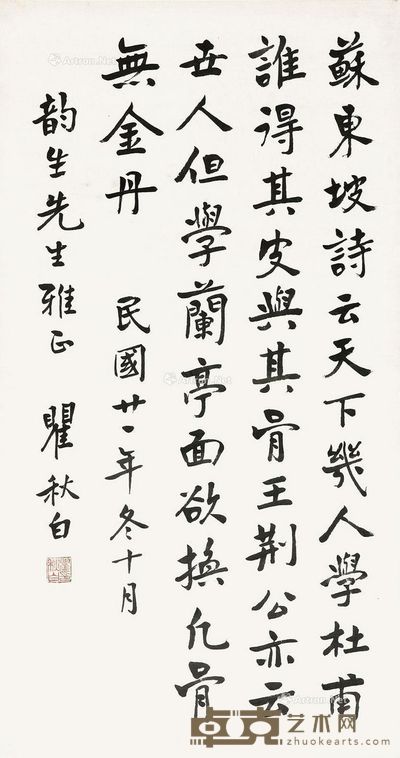 蘇東坡詩云天下幾人學杜甫
誰得其皮與其骨王荆公亦云
世人但學蘭亭面欲換凡骨
無金丹 民國廿一年冬十月
韵生先生雅正 瞿秋白
卓克艺术网
zhuokearts.com